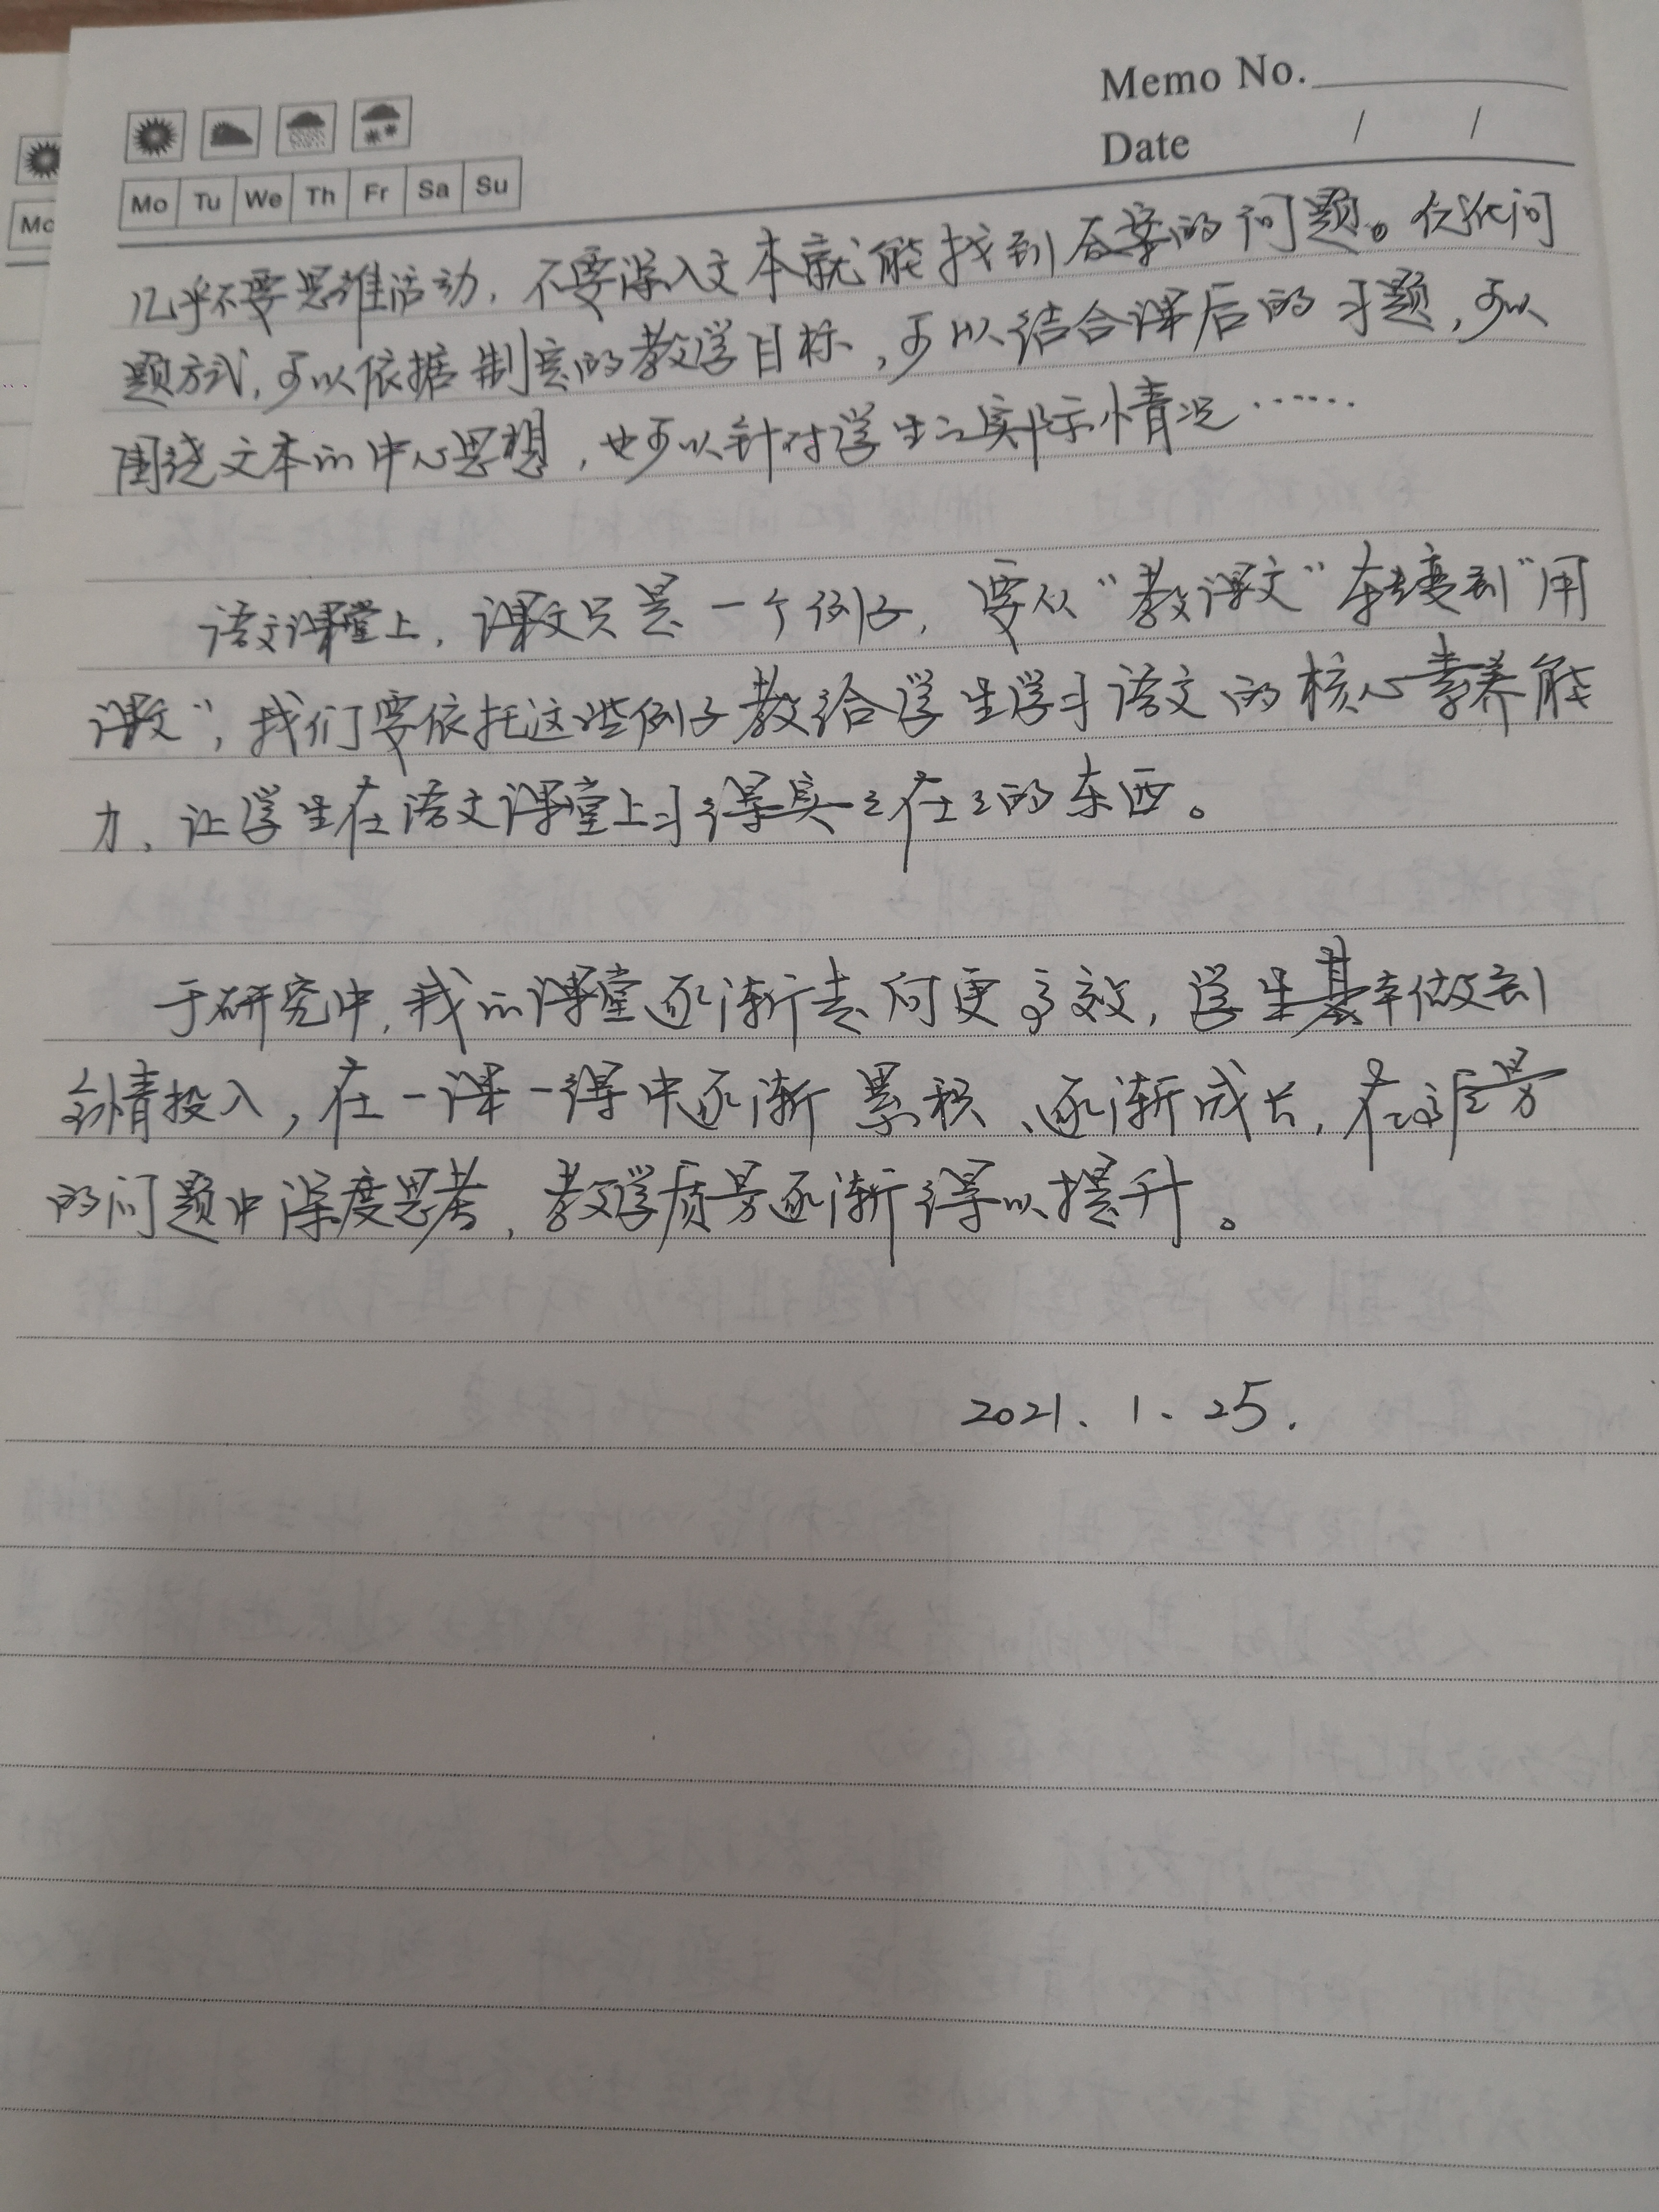 Memo No.
Date / /
Mo Tu We Th Fr Sa Su
Mo
几乎不要思维活动，不要深入文本就能找到答案的问题。优化问
题方式，可以依据制定的教学目标，可以结合课后的习题，可以
围绕文本的中心思想，也可以针对学生之实际示情况……
语文课堂上，课文只是一个例子，要从“教课文”转变到“用
课文”，我们要依托这些例子教给学生学习语文的核心素养能
力，让学生在语文课堂上习得实实在在的东西。
于研究中，我的课堂逐渐走向更高效，学生基本做到
全情投入，在一课一得中逐渐累积、逐渐成长，在
的问题中深度思考，教学质量逐渐得以提升。
2021、1、25.